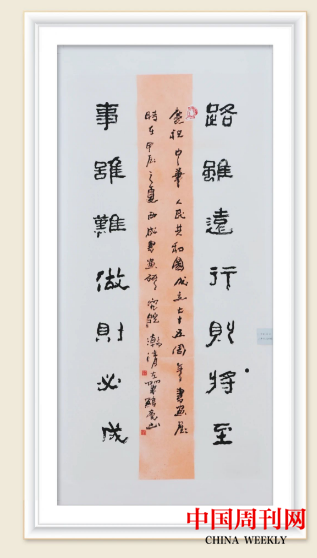 路雖遠行則將至
事雖難做則必成
慶祝中華人民共和國成立七十五周年書畫展
時在甲辰之夏西
中国周刊网
CHINA WEEKLY